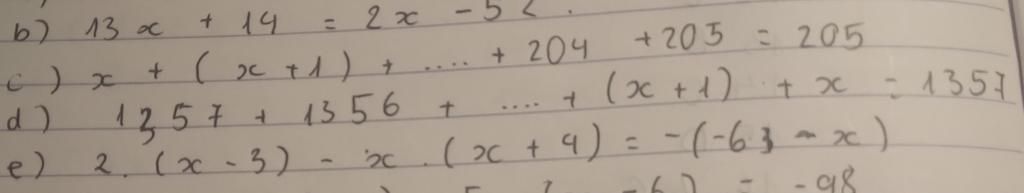 b) 13x + 14 = 2x - 52.
c) x + (x+1) + .... + 204 + 205 = 205
d) 1357 + 1356 + .... + (x+1) + x = 1357
e) 2. (x - 3) - x . (x + 4) = -(-63 - x)
= -98